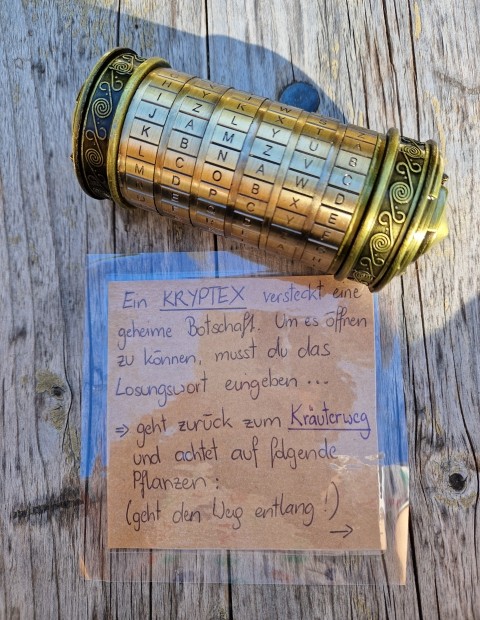 I Z L Y U B
J A M Z V C
K B N A W D
L C O B X E
M D P C Y F
Ein KRYPTEX versteckt eine
geheime Botschaft. Um es öffnen
zu können, musst du das
Losungswort eingeben ...
⇒ geht zurück zum Kräuterweg
und achtet auf folgende
Pflanzen :
(geht den Weg entlang !)
→